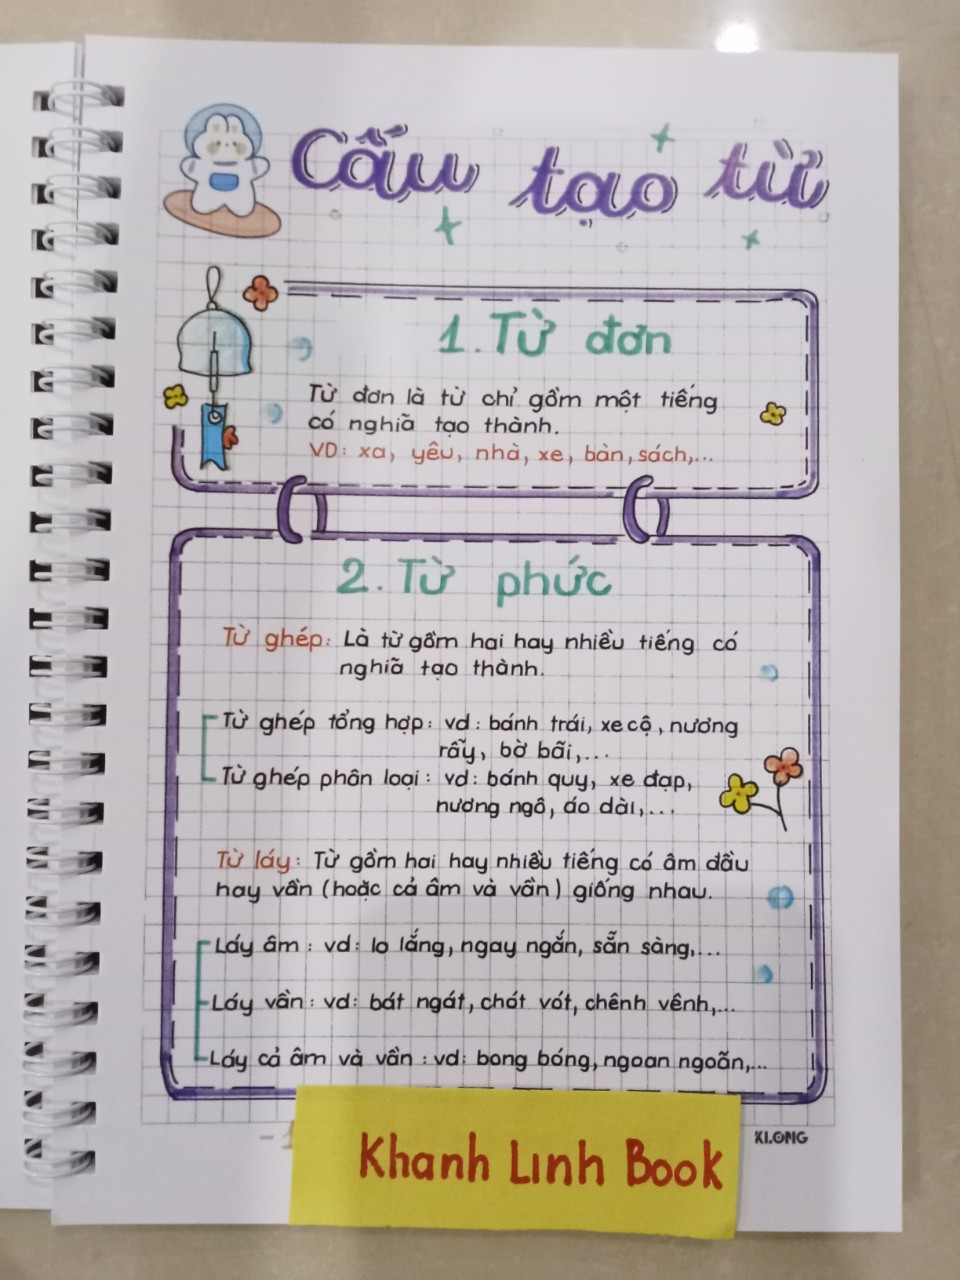 Cấu tạo từ
1. Từ đơn
Từ đơn là từ chỉ gồm một tiếng
có nghĩa tạo thành.
VD: xa, yêu, nhà, xe, bàn, sách,...
2. Từ phức
Từ ghép: Là từ gồm hai hay nhiều tiếng có
nghĩa tạo thành.
Từ ghép tổng hợp: vd: bánh trái, xe cộ, nương
rẫy, bờ bãi,...
Từ ghép phân loại: vd: bánh quy, xe đạp,
nương ngô, áo dài,...
Từ láy: Từ gồm hai hay nhiều tiếng có âm đầu
hay vần (hoặc cả âm và vần) giống nhau.
Láy âm: vd: lo lắng, ngay ngắn, sẵn sàng,...
Láy vần: vd: bát ngát, chót vót, chênh vênh,...
Láy cả âm và vần: vd: bong bóng, ngoan ngoãn,...
KLONG
Khanh Linh Book